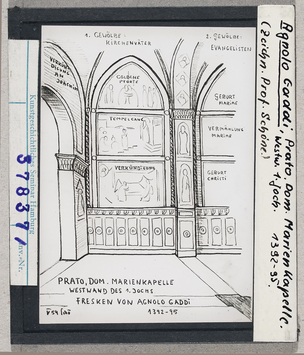 1. GEWÖLBE:
KIRCHENVÄTER
2. GEWÖLBE:
EVANGELISTEN
VERKÜN
DIGUNG
AN
JOACHIM
GOLDENE
PFORTE
TEMPELGANG
VERKÜNDIGUNG
GEBURT
MARIAE
VERMÄHLUNG
MARIAE
GEBURT
CHRISTI
PRATO, DOM. MARIENKAPELLE
WESTWAND DES 1. JOCHS
FRESKEN VON AGNOLO GADDI
1392-95
Kunstgeschichtliches Seminar Hamburg
37837
Inv.-Nr.
Agnolo Gaddi, Prato. Dom. Marienkapelle.
Westw. 1. Joch. 1392-95.
(Zeichn. Prof. Schöne)